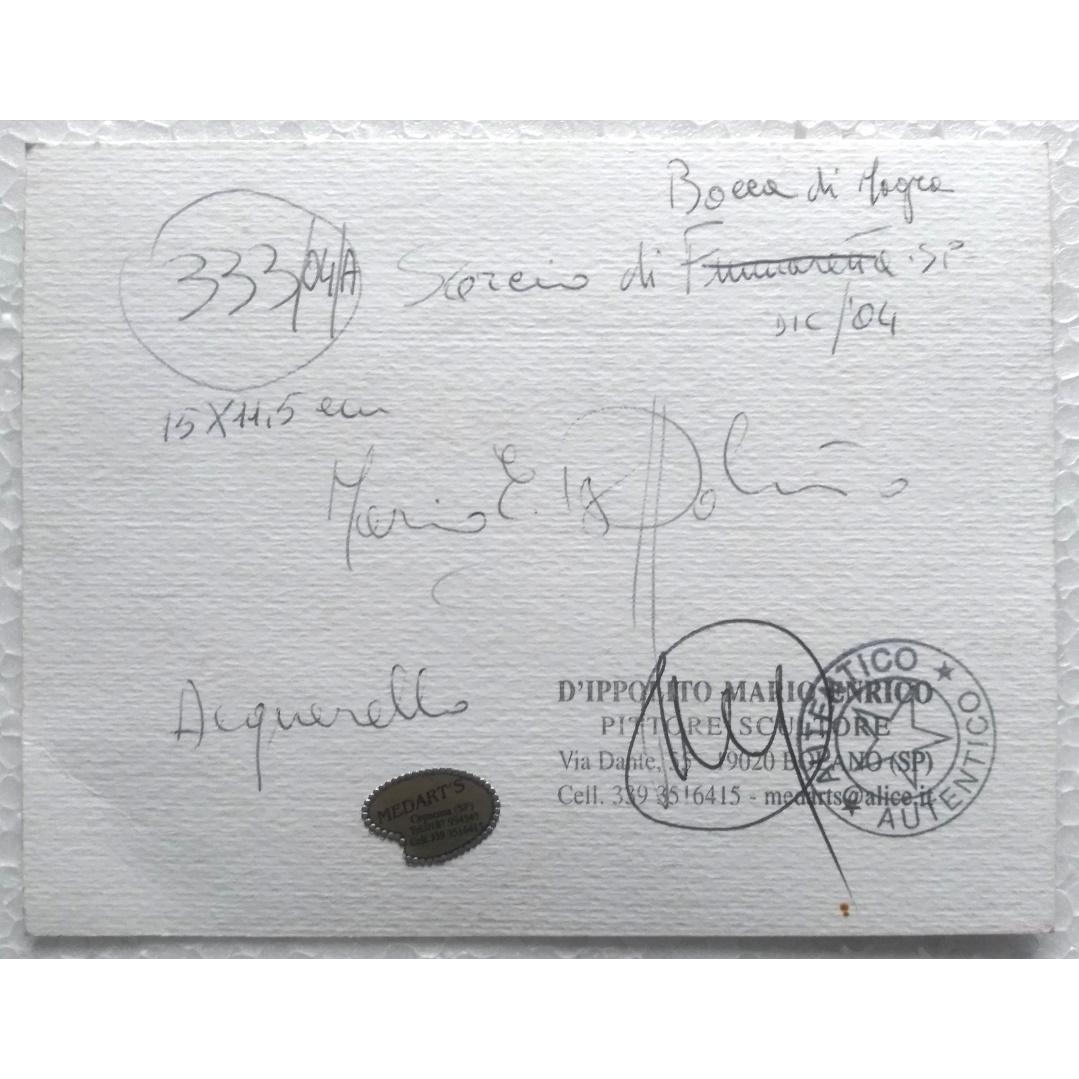 Bocca di Magra
333/04/A Scorcio di Fiumaretta - SP
DIC/04
15X11,5 cm
Mario E. D'Ippolito
Acquerello
D'IPPOLITO MARIO ENRICO
PITTORE SCULTORE
Via Dante, - 19020 BOLANO (SP)
Cell. 339 3516415 - medarts@alice.it
AUTENTICO ★ AUTENTICO ★
MEDART'S
(SP)
Cell. 339 3516415